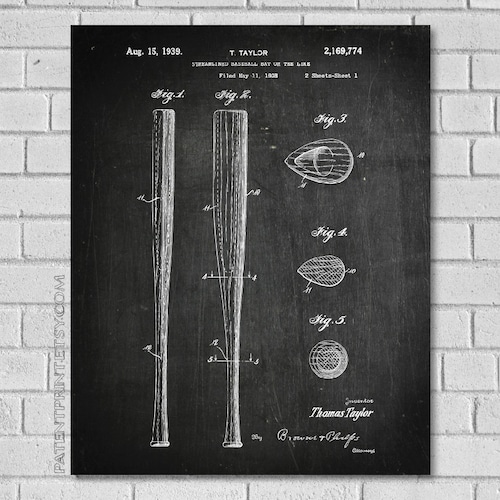 Aug. 15, 1939. T. TAYLOR 2,169,774
STREAMLINED BASEBALL BAT OR THE LIKE
Filed May 11, 1938 2 Sheets-Sheet 1
Fig. 1. Fig. 2. Fig. 3.
11 10 11 10
11
Fig. 4.
4 4 10
11
Fig. 5.
10 5 5
Inventor
Thomas Taylor
By Brown & Phelps
Attorneys
PATENTPRINT.ETSY.COM